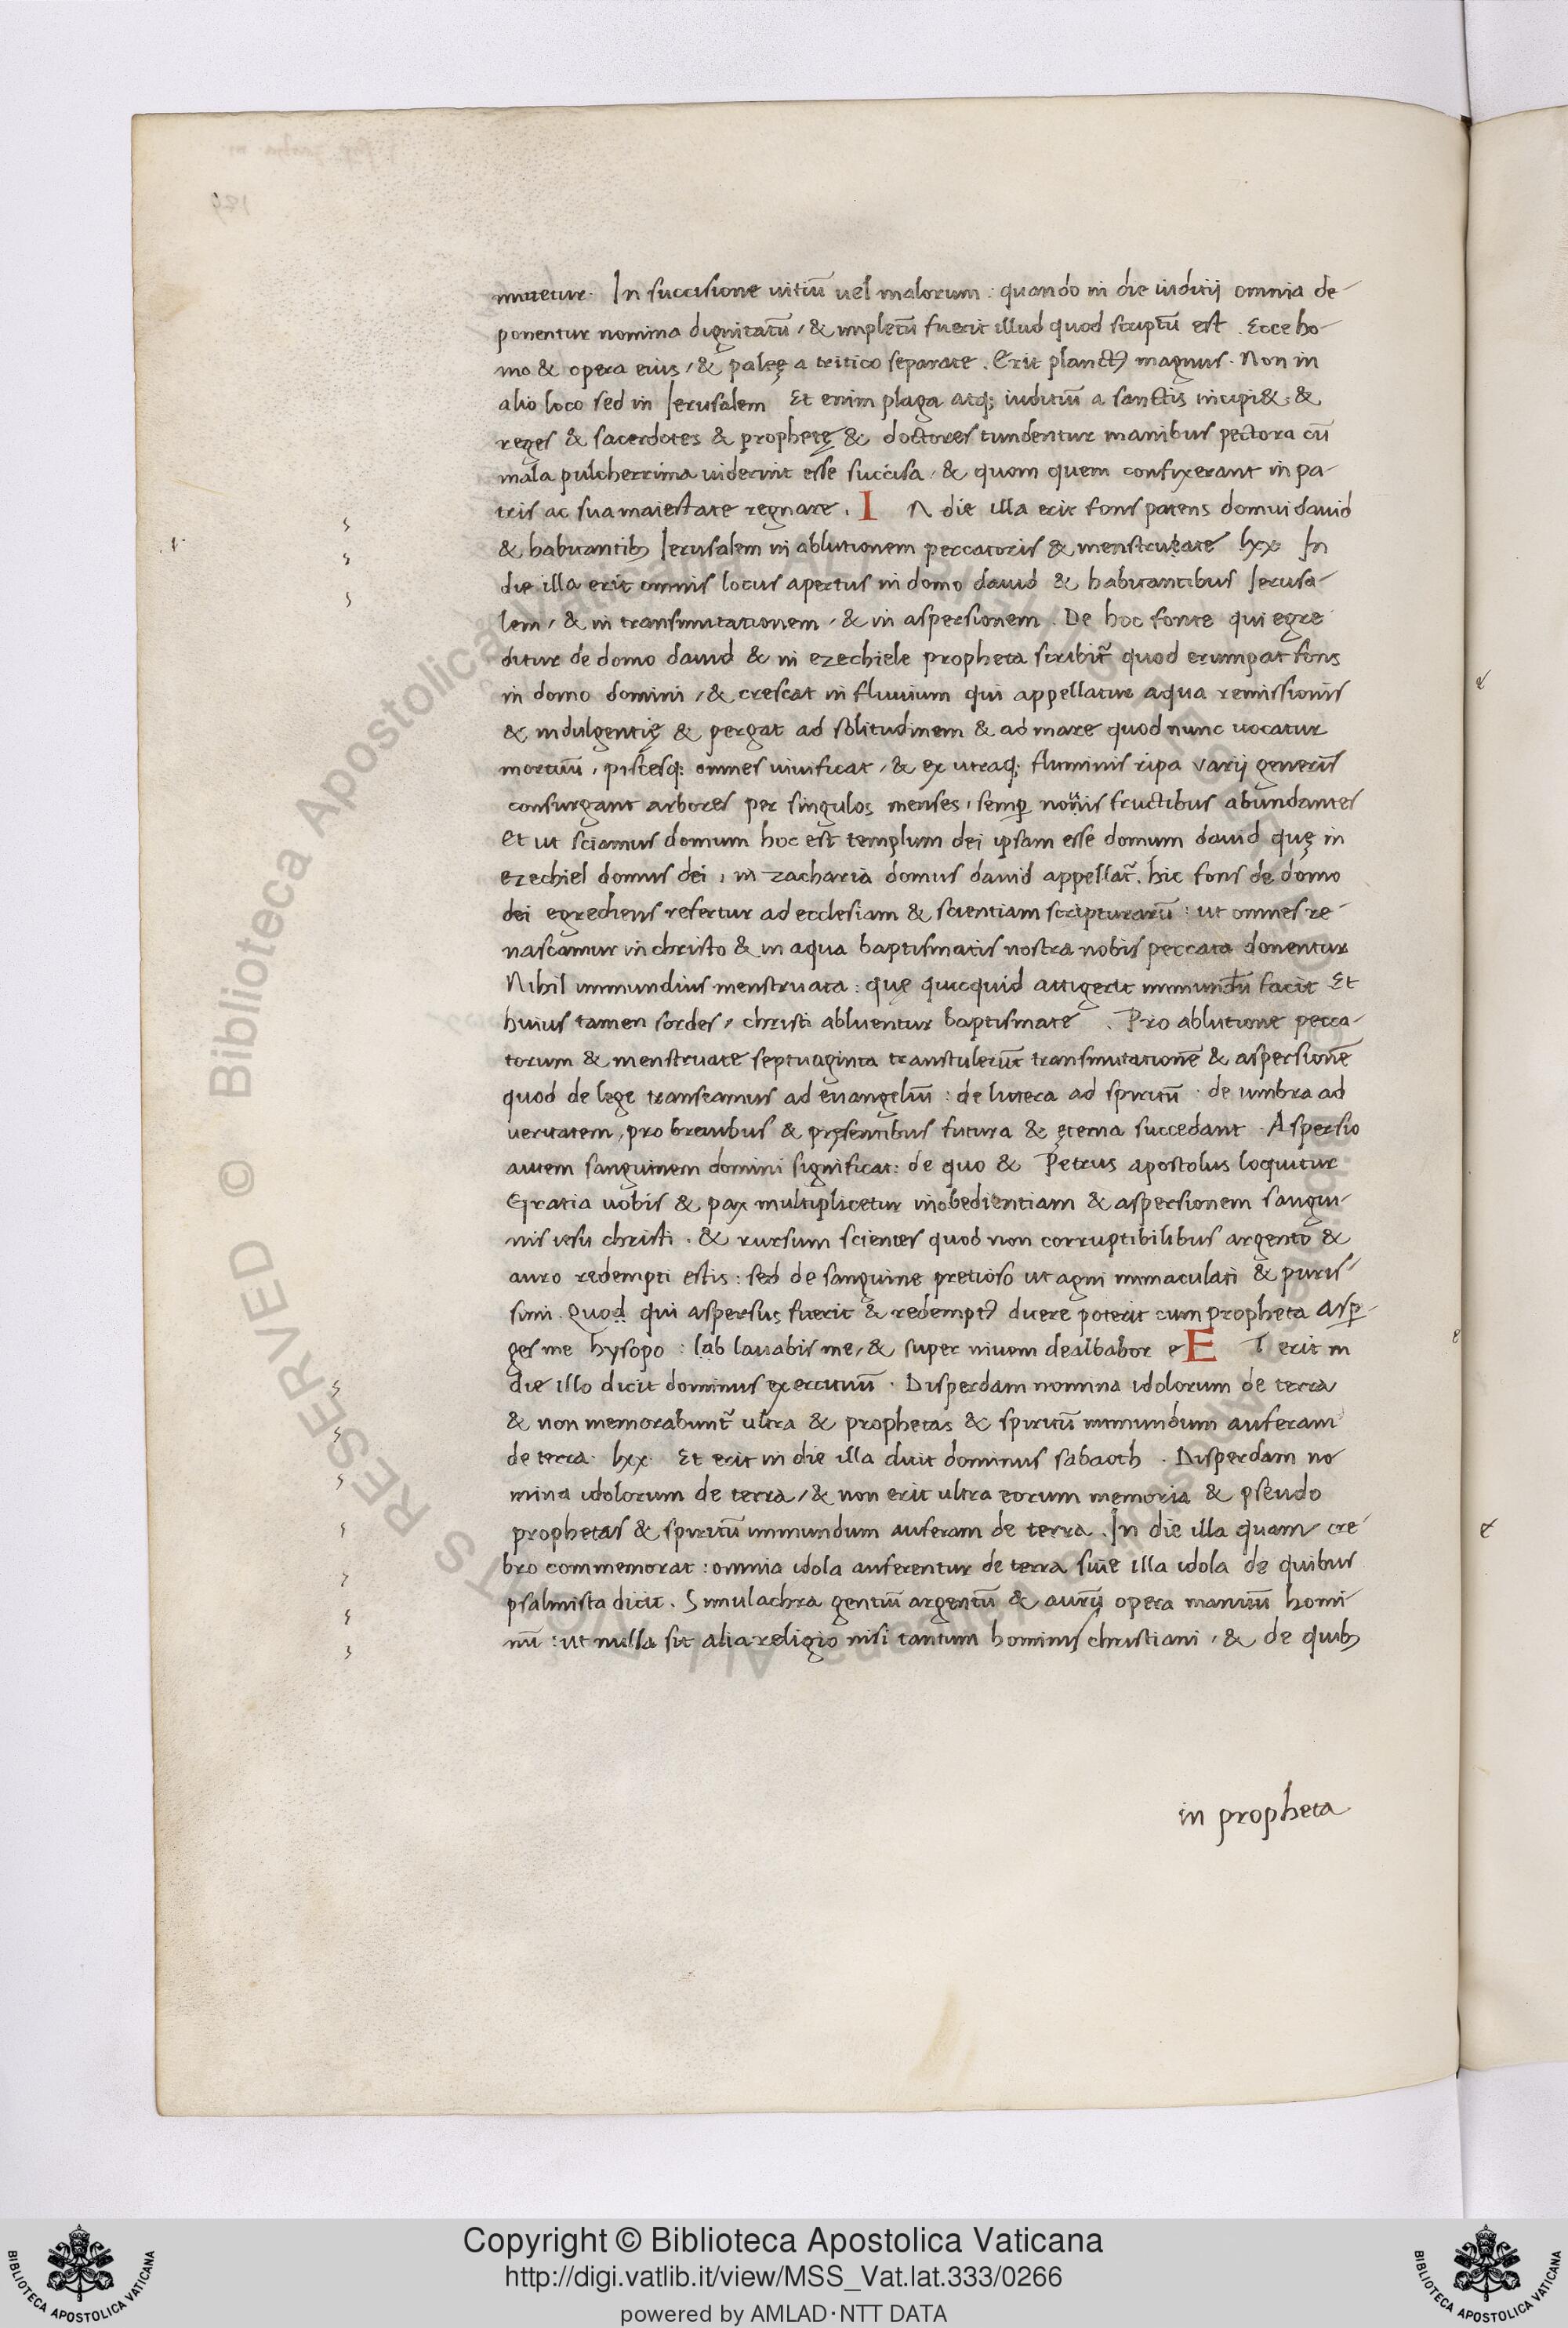 mittetur. In succisione uitiū uel malorum : quando in die iuditij omnia de-
ponentur nomina dignitatū, & impletū fuerit illud quod scriptū est. Ecce ho-
mo & opera eius, & paleę a tritico separate. Erit planctꝰ magnus. Non in
alio loco sed in Ierusalem Et enim plaga atq; iuditiū a sanctis incipi&: &
reges & sacerdotes & prophetę & doctores tundentur manibus pectora cū
mala pulcherrima uiderint esse succisa, & quom quem confixerant in pa-
tris ac sua maiestate regnare. I N die illa erit fons patens domui dauid
& habitantibꝫ Ierusalem in ablutionem peccatoris & menstruate lxx In
die illa erit omnis locus apertus in domo dauid & habitantibus Ierusa-
lem, & in transmutationem, & in aspersionem. De hoc fonte qui egre
ditur de domo dauid & in ezechiele propheta scribit̃ quod erumpat fons
in domo domini, & crescat in fluuium qui appellatur aqua remissionis
& indulgentię & pergat ad solitudinem & ad mare quod nunc uocatur
mortuū, piscesq; omnes uiuificat, & ex utraq; fluminis ripa varij generis
consurgant arbores per singulos menses, semꝑ nouis fructibus abundantes
Et ut sciamus domum hoc est templum dei ipsam esse domum dauid quę in
ezechiel domus dei, in zacharia domus dauid appellat̃. hic fons de domo
dei egrediens refertur ad ecclesiam & scientiam scripturarū : ut omnes re-
nascamur in christo & in aqua baptismatis nostra nobis peccata donentur
Nihil immundius menstruata : quę quicquid attigerit immundū facit Et
huius tamen sordes, christi abluentur baptismate . Pro ablutione pecca-
torum & menstruate septuaginta transtulerūt transmutationē & aspersionē
quod de lege transeamus ad euangeliū : de littera ad spiritū . de umbra ad
ueritatem, pro breuibus & pręsentibus futura & ęterna succedant . Aspersio
autem sanguinem domini significat: de quo & Petrus apostolus loquitur
Gratia uobis & pax multiplicetur inobedientiam & aspersionem sangui-
nis iesu christi . & rursum scientes quod non corruptibilibus argento &
auro redempti estis : sed de sanguine pretioso ut agni immaculati & puris-
simi. Quod qui aspersus fuerit & redemptꝰ dicere poterit cum propheta Asꝑ-
ges me hysopo : lab lauabis me, & super niuem dealbabor e E T erit in
die illo dicit dominus exercituū . Disperdam nomina idolorum de terra
& non memorabunt̃ ultra & prophetas & spiritū immundum auferam
de terra. lxx. Et erit in die illa dicit dominus sabaoth . Disperdam no
mina idolorum de terra, & non erit ultra eorum memoria & pseudo
prophetas & spiritū immundum auferam de terra. In die illa quam cre
bro commemorat : omnia idola auferentur de terra siue illa idola de quibus
psalmista dicit. Simulachra gentiū argentū & aurū opera manuū homi-
nū : ut nulla sit alia religio nisi tantum hominis christiani, & de quibꝫ
in propheta
Copyright © Biblioteca Apostolica Vaticana
http://digi.vatlib.it/view/MSS_Vat.lat.333/0266
powered by AMLAD·NTT DATA